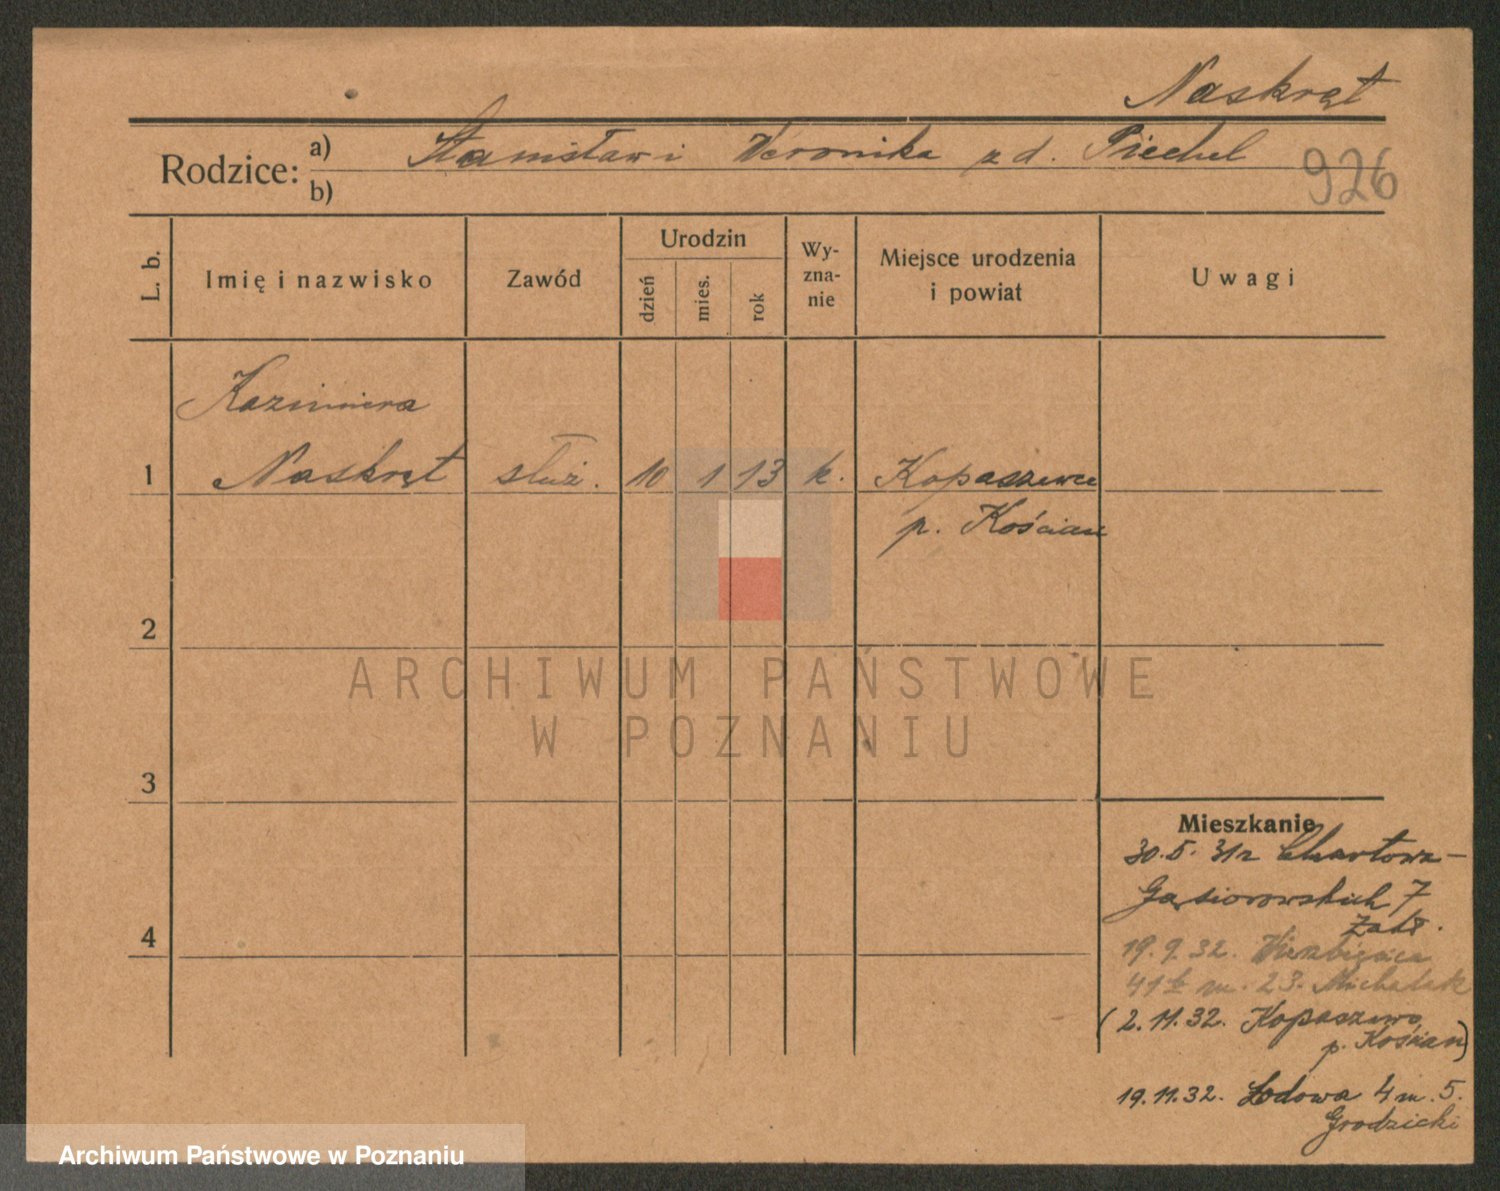 Naskręt
Rodzice: a) Stanisław i Weronika z d. Piechel
b)
926
L. b.
Imię i nazwisko
Zawód
Urodzin
dzień
mies.
rok
Wy-
zna-
nie
Miejsce urodzenia
i powiat
Uwagi
Kazimiera
1 Naskręt służ. 10 1 13 k. Kopaszewo
p. Kościan
2
ARCHIWUM PAŃSTWOWE
W POZNANIU
3
4
Mieszkanie
30.5.31r
Gąsiorowskich 7
19.9.32. Wierzbięcica
m. 23. Michalak
(2.11.32. Kopaszewo
p. Kościan)
19.11.32. Lodowa 4 m. 5.
Grodzicki
Archiwum Państwowe w Poznaniu